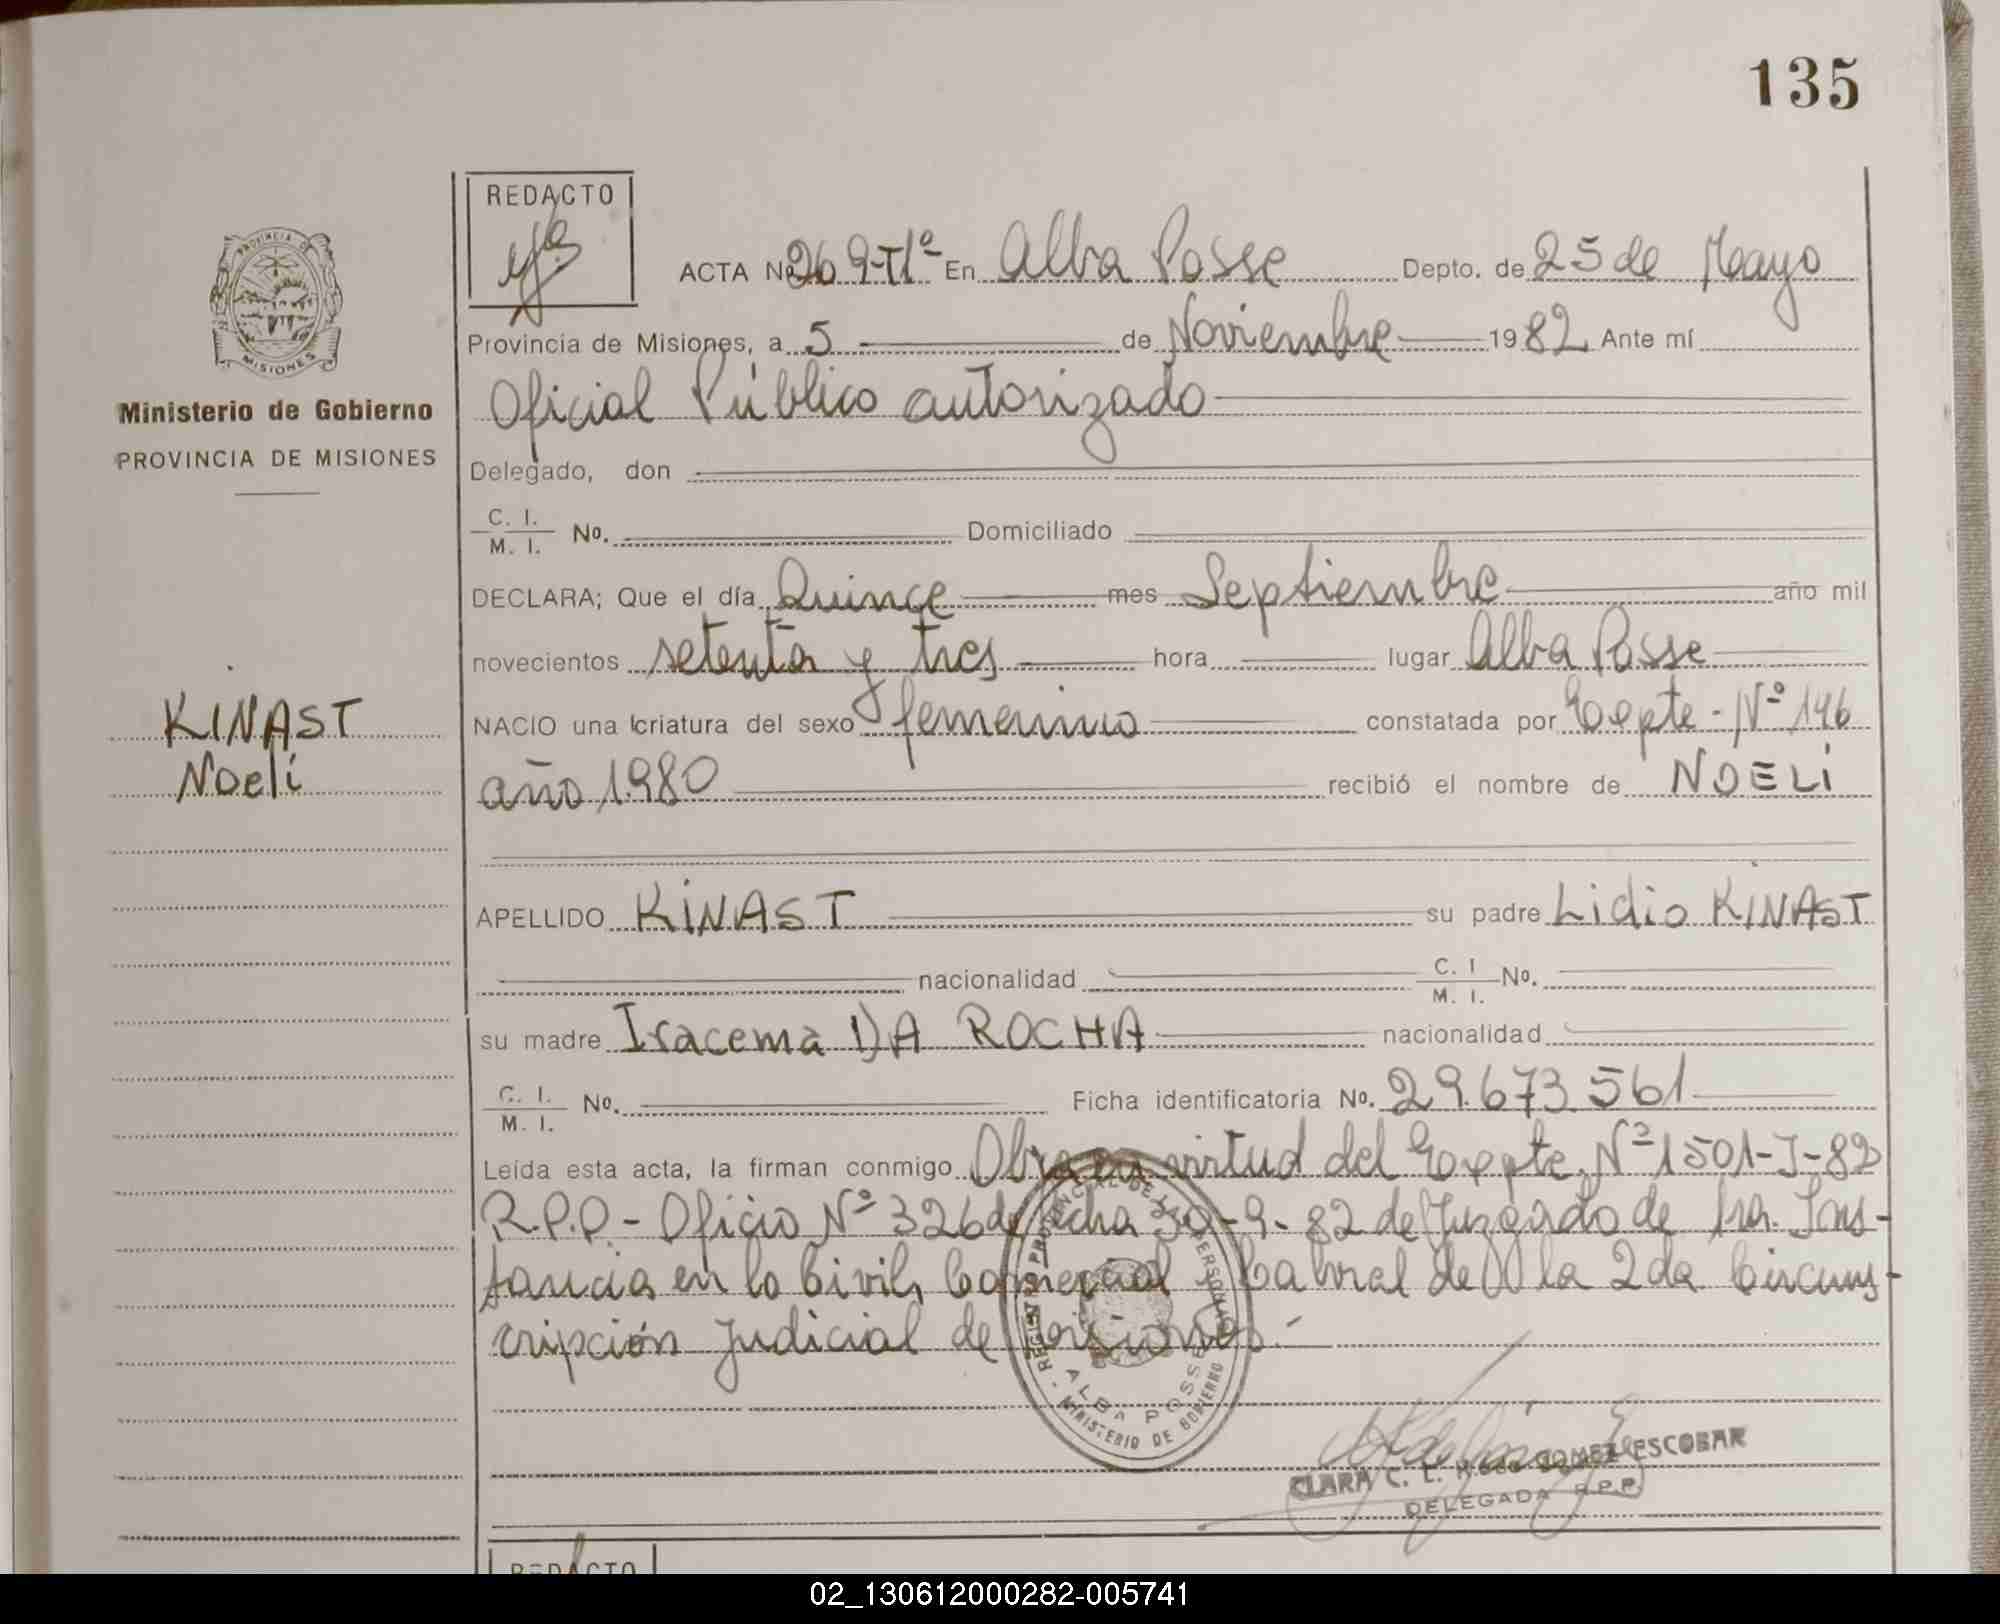 135
REDACTO
PROVINCIA DE
MISIONES
Ministerio de Gobierno
PROVINCIA DE MISIONES
KINAST
Noelí
ACTA Nº 269-Tlº En Alba Posse Depto. de 25 de Mayo
Provincia de Misiones, a 5 de Noviembre 1982 Ante mí
Oficial Público autorizado
Delegado, don
C. I.
M. I. Nº. Domiciliado
DECLARA; Que el día Quince mes Septiembre año mil
novecientos setenta y tres hora lugar Alba Posse
NACIO una criatura del sexo femenino constatada por Expte - Nº 146
año 1980 recibió el nombre de NOELI
APELLIDO KINAST su padre Lidio KINAST
nacionalidad C. I
M. I. Nº.
su madre Iracema DA ROCHA nacionalidad
C. I.
M. I. Nº. Ficha identificatoria Nº. 29.673.561
Leída esta acta, la firman conmigo Obra en virtud del Expte. Nº 1501-J-82
R.P.P. - Oficio Nº 326 de fecha 30-9-82 del Juzgado de 1ra. Ins-
tancia en lo Civil, Comercial y Laboral de la 2da Circuns-
cripción Judicial de Misiones.-
REGISTRO PROVINCIAL DE LAS PERSONAS
ALBA POSSE
MINISTERIO DE GOBIERNO
CLARA C. E. GOMEZ ESCOBAR
DELEGADA R.P.P.
REDACTO
02_130612000282-005741